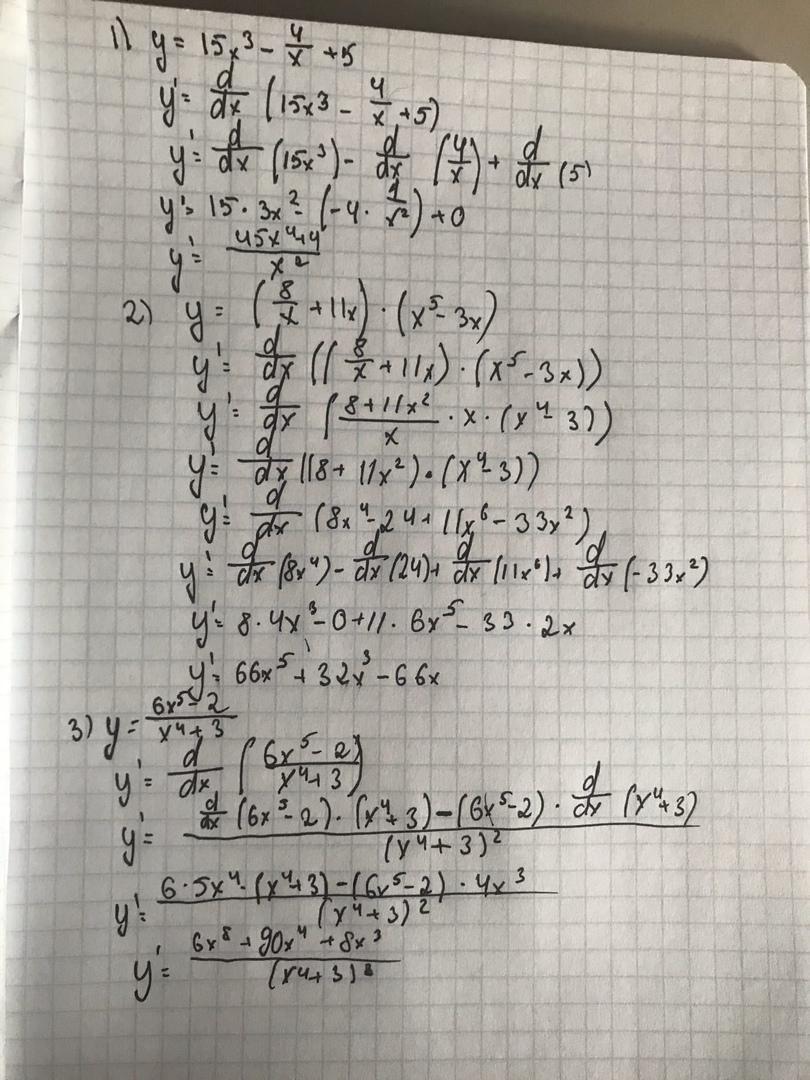 1) y = 15x³ - 4/x + 5
y' = d/dx (15x³ - 4/x + 5)
y' = d/dx (15x³) - d/dx (4/x) + d/dx (5)
y' = 15 · 3x² - (-4 · 1/x²) + 0
y' = (45x⁴+4)/x²
2) y = (8/x + 11x) · (x⁵ - 3x)
y' = d/dx ((8/x + 11x) · (x⁵ - 3x))
y' = d/dx ((8 + 11x²)/x · x · (x⁴ - 3))
y' = d/dx ((8 + 11x²) · (x⁴ - 3))
y' = d/dx (8x⁴ - 24 + 11x⁶ - 33x²)
y' = d/dx (8x⁴) - d/dx (24) + d/dx (11x⁶) + d/dx (-33x²)
y' = 8 · 4x³ - 0 + 11 · 6x⁵ - 33 · 2x
y' = 66x⁵ + 32x³ - 66x
3) y = (6x⁵ - 2)/(x⁴ + 3)
y' = d/dx ((6x⁵ - 2)/(x⁴ + 3))
y' = (d/dx (6x⁵ - 2) · (x⁴ + 3) - (6x⁵ - 2) · d/dx (x⁴ + 3))/(x⁴ + 3)²
y' = (6 · 5x⁴ · (x⁴ + 3) - (6x⁵ - 2) · 4x³)/(x⁴ + 3)²
y' = (6x⁸ + 90x⁴ + 8x³)/(x⁴ + 3)²